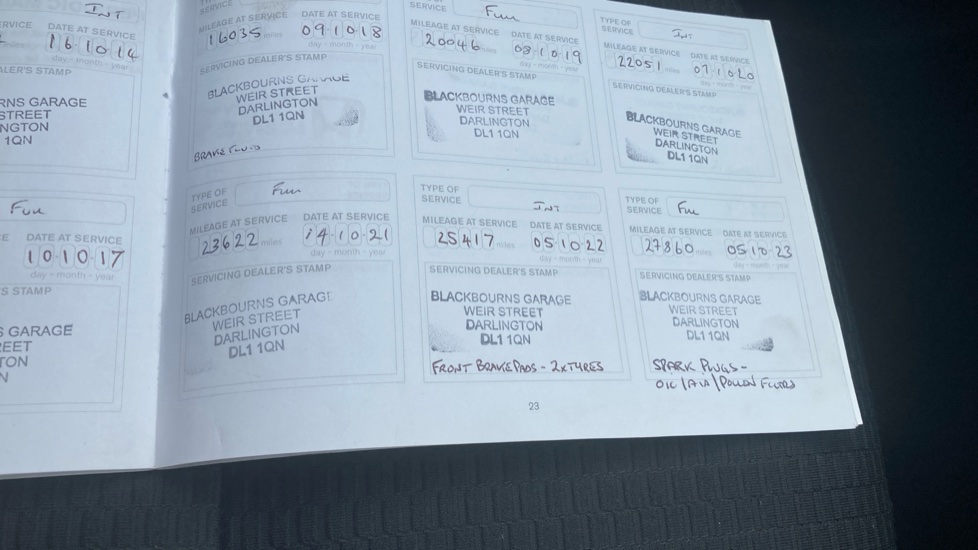 INT
RVICE DATE AT SERVICE
miles 16 10 14
day - month - year
ALER'S STAMP
RNS GARAGE
STREET
NGTON
1QN
Full
E DATE AT SERVICE
10 10 17
day - month - year
S STAMP
S GARAGE
REET
TON
N
SERVICE
MILEAGE AT SERVICE DATE AT SERVICE
16035 miles 09 10 18
day - month - year
SERVICING DEALER'S STAMP
BLACKBOURNS GARAGE
WEIR STREET
DARLINGTON
DL1 1QN
BRAKE FLUID
SERVICE Full
MILEAGE AT SERVICE DATE AT SERVICE
20046 miles 08 10 19
day - month - year
SERVICING DEALER'S STAMP
BLACKBOURNS GARAGE
WEIR STREET
DARLINGTON
DL1 1QN
TYPE OF
SERVICE INT
MILEAGE AT SERVICE DATE AT SERVICE
22051 miles 07 10 20
day - month - year
SERVICING DEALER'S STAMP
BLACKBOURNS GARAGE
WEIR STREET
DARLINGTON
DL1 1QN
TYPE OF
SERVICE Full
MILEAGE AT SERVICE DATE AT SERVICE
23622 miles 14 10 21
day - month - year
SERVICING DEALER'S STAMP
BLACKBOURNS GARAGE
WEIR STREET
DARLINGTON
DL1 1QN
TYPE OF
SERVICE INT
MILEAGE AT SERVICE DATE AT SERVICE
25417 miles 05 10 22
day - month - year
SERVICING DEALER'S STAMP
BLACKBOURNS GARAGE
WEIR STREET
DARLINGTON
DL1 1QN
FRONT BRAKE PADS - 2xTYRES
TYPE OF
SERVICE Full
MILEAGE AT SERVICE DATE AT SERVICE
27860 miles 05 10 23
day - month - year
SERVICING DEALER'S STAMP
BLACKBOURNS GARAGE
WEIR STREET
DARLINGTON
DL1 1QN
SPARK PLUGS -
OIL/AIR/POLLEN FILTERS
23